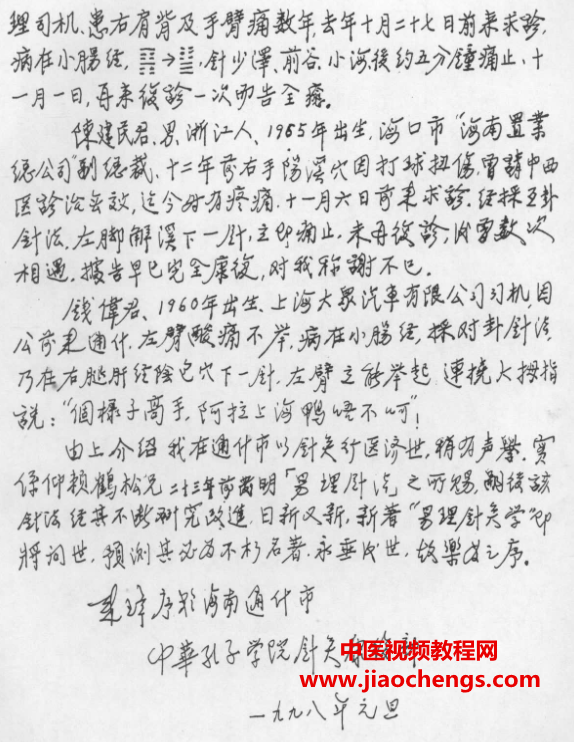 理司机、患右肩背及手臂痛数年,去年十月二十七日前来求診,
病在小腸经,䷲→䷸,针少澤、前谷、小海後约五分鐘痛止,十
一月一日,再来復診一次即告全癒。
陳建民君、男、浙江人、1965年出生,海口市"海南置業
總公司"副總裁、十二年前右手陽溪穴因打球扭伤,曾請中西
医診治無效,迄今时有疼痛,十一月六日前来求診,经採互卦
针法,左脚解溪下一针,立即痛止,未再復診,后曾数次
相遇,據告早已完全康復,对我称謝不已。
钱偉君、1960年出生、上海大众汽車有限公司司机,因
公前来通什,左臂酸痛不举,病在小腸经,採对卦针法
乃在右腿肝经陰包穴下一针,左臂立能举起,連撓大拇指
說:"個樣子高手,阿拉上海鸭唔不呵"!
由上介绍我在通什市以针灸行医济世,稍有声譽,實
係仰赖鶴松兄二十三年前發明「易理针法」之所赐,嗣後該
针法经其不断研究改進,日新又新,新著"易理针灸学"即
將问世,预測其必为不朽名著,永垂后世,故樂為之序。
序於海南通什市
中華孔子学院针灸
一九九八年元旦
中医视频教程网
www.jiaochengs.com